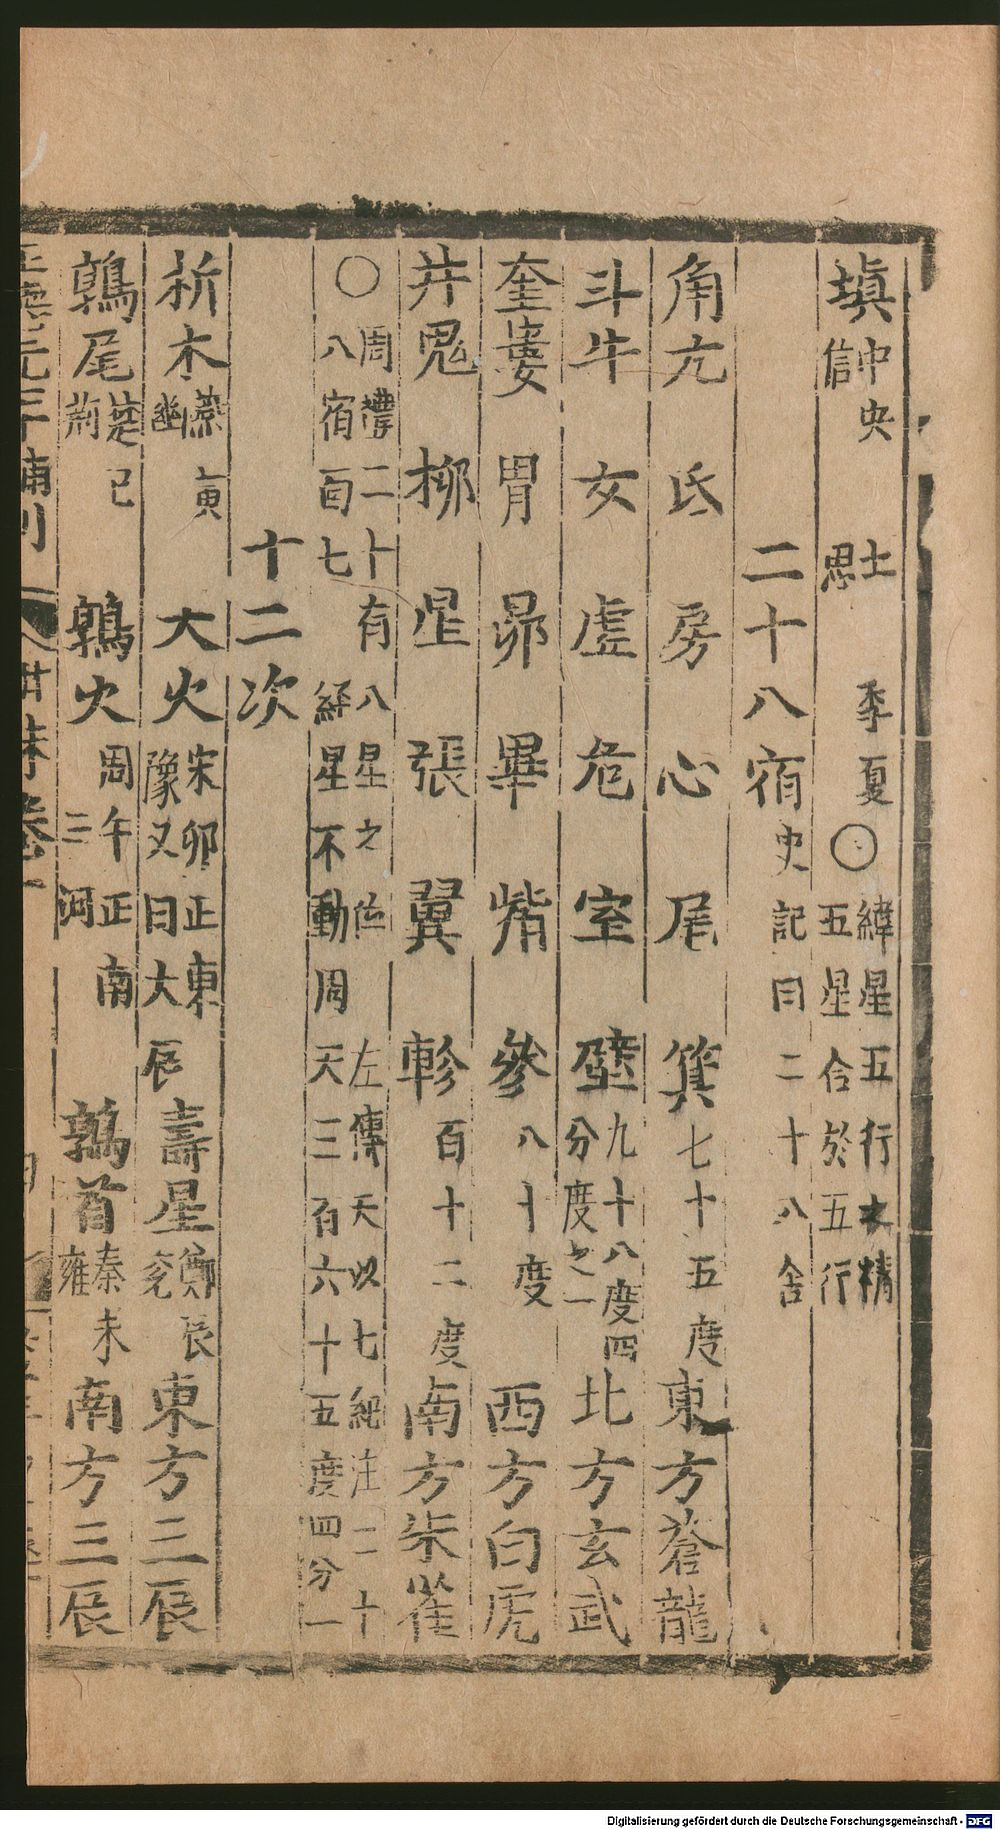 填中央 土 季夏〇緯星五行之精
信 思 五星合於五行
二十八宿史記曰二十八舍
角亢氐房心尾箕七十五度東方蒼龍
斗牛女虛危室壁九十八度四分度之一北方玄武
奎婁胃昴畢觜參八十度西方白虎
井鬼柳星張翼軫百十二度南方朱雀
〇周禮二十有八星之位 左傳天以七紀注二十
八宿面七 經星不動周天三百六十五度四分一
十二次
析木燕寅幽 大火宋卯正東豫又曰大辰 壽星鄭辰兖 東方三辰
鶉尾楚巳荊 鶉火周午正南三河 鶉首秦未雍 南方三辰
Digitalisierung gefördert durch die Deutsche Forschungsgemeinschaft - DFG